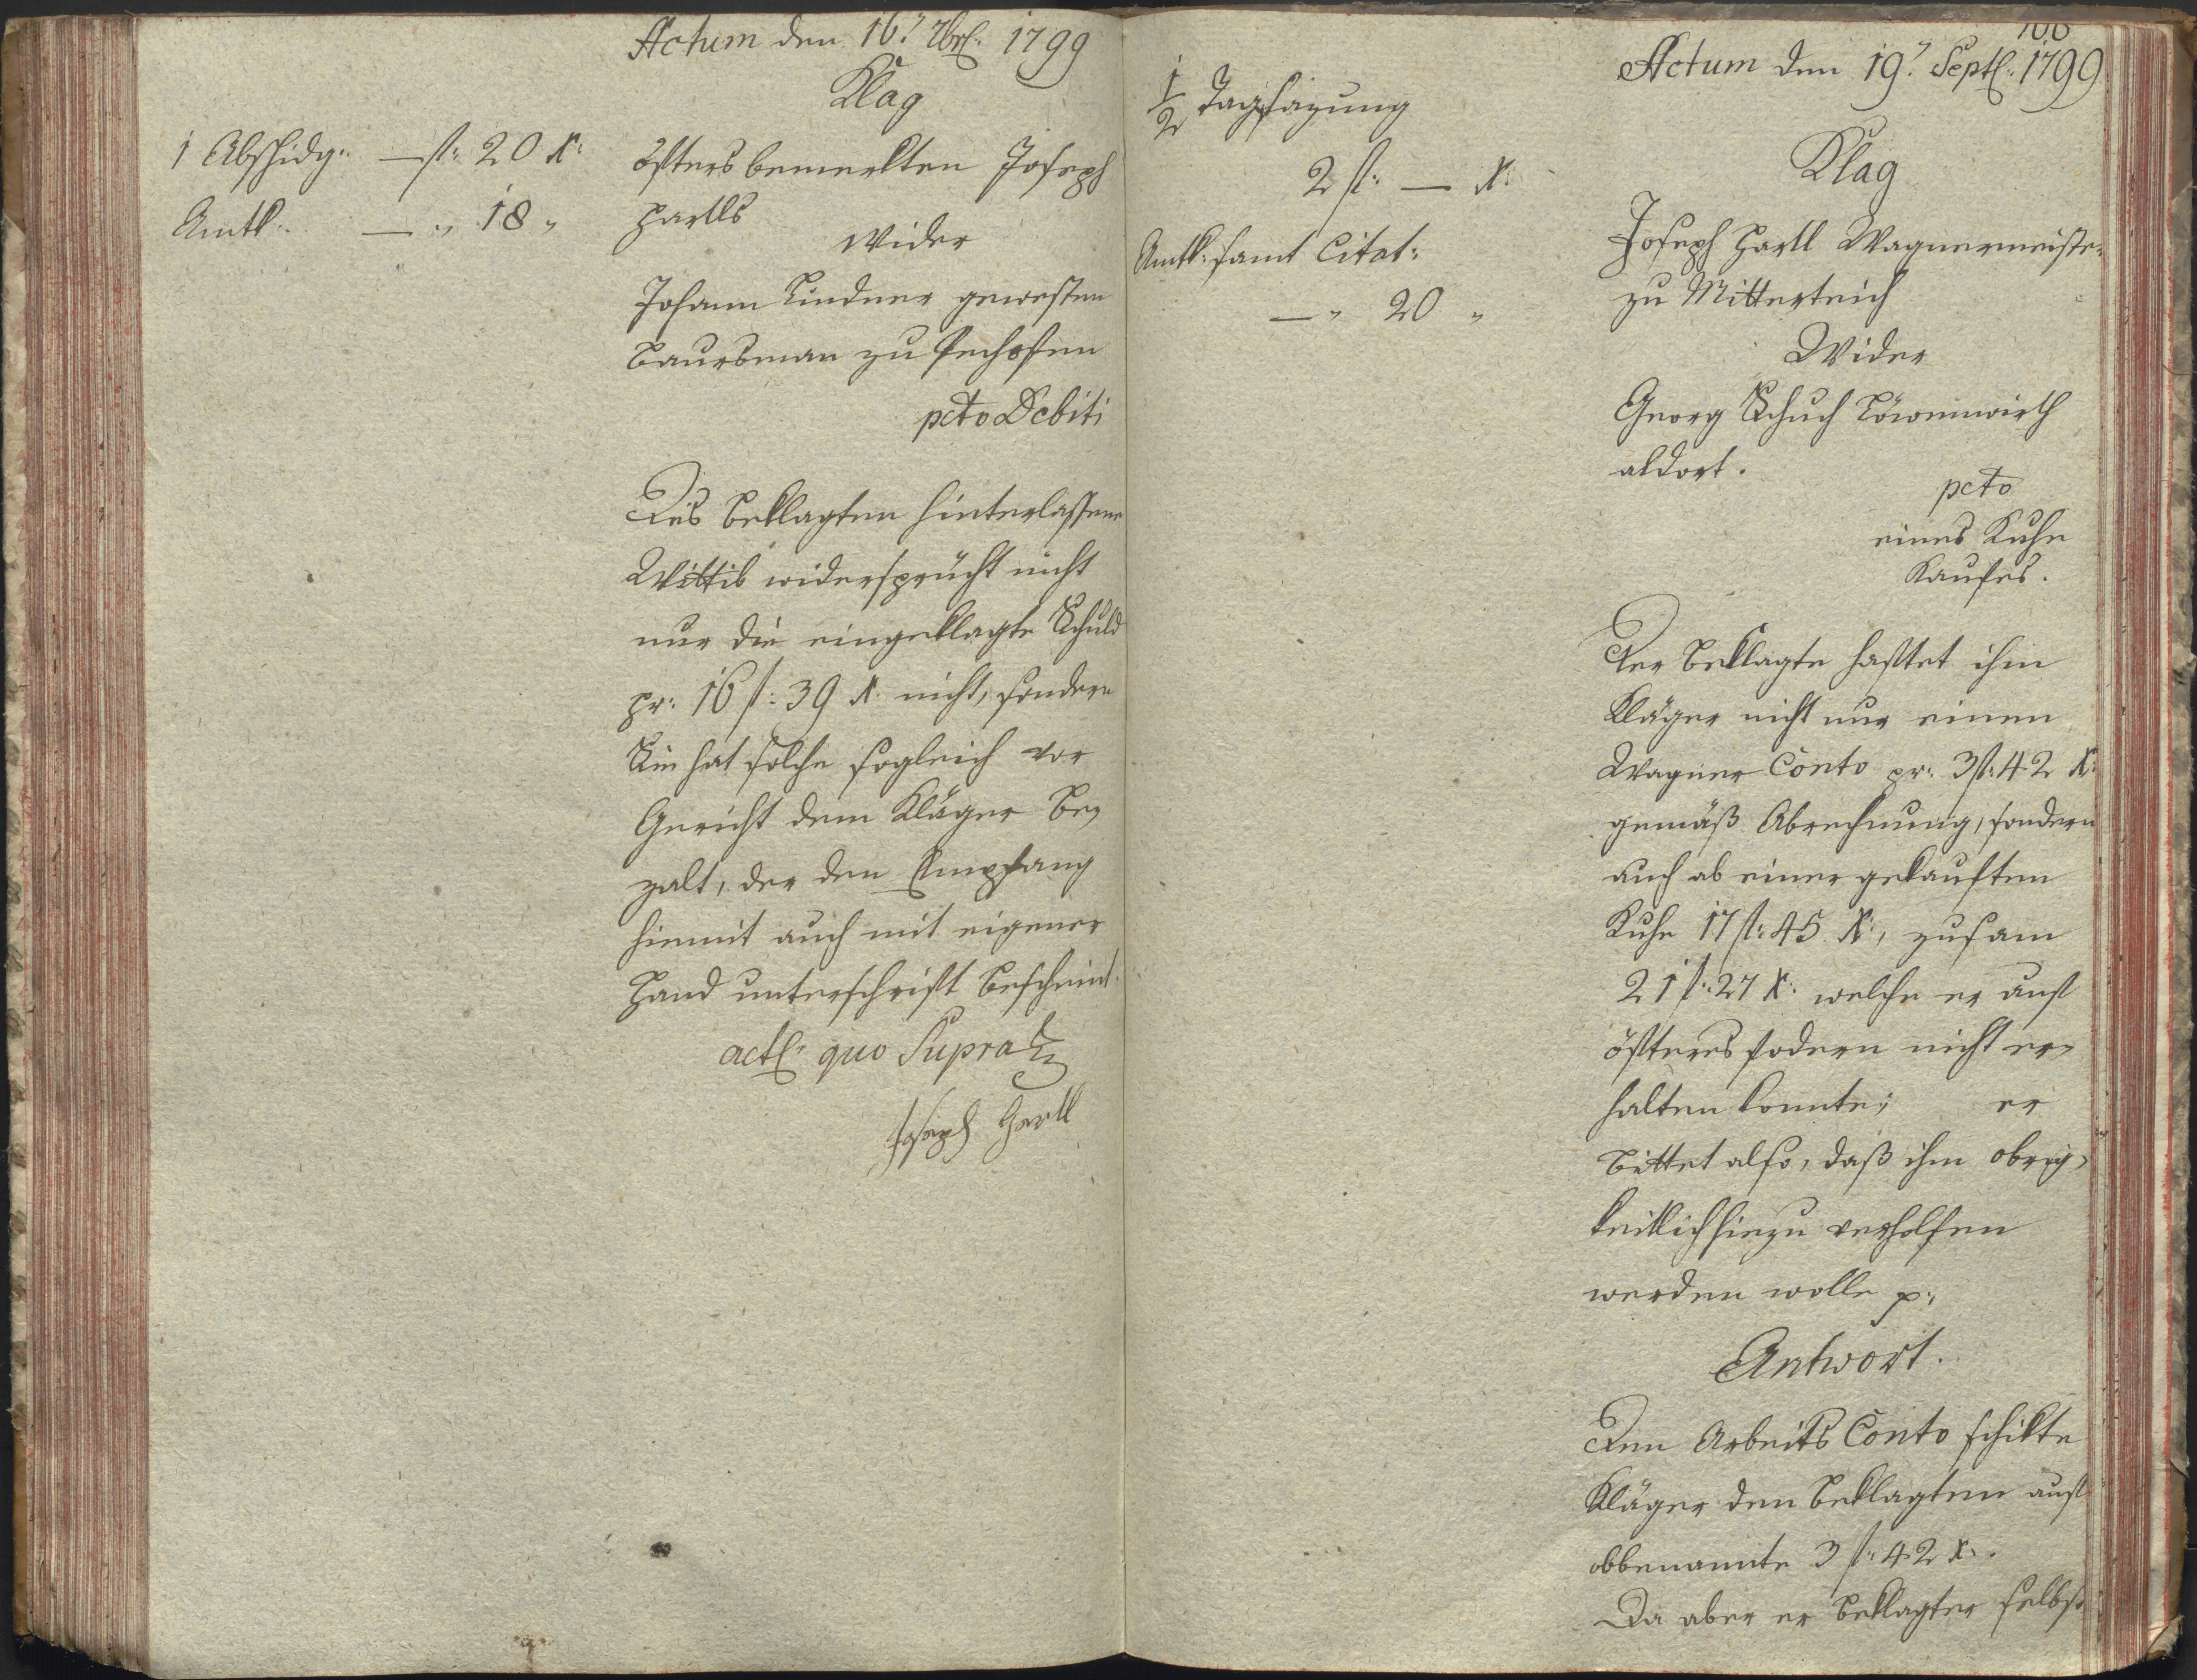 Actum den 16.t 7br: 1799
Klag
1 Abschidg: — fl: 20 x:
Amtk: — " 18 "
öfters bemerkten Joseph
Hartls
Wider
Johann Lindner gewesten
Baursman zu Pechofen
pcto Debiti
Des Beklagten hinterlassene
Wittib widersprücht nicht
nur die eingeklagte Schuld
pr: 16 fl: 39 x: nicht, sondern
Sie hat solche sogleich vor
Gericht dem Kläger be-
zalt, der den Empfang
hiemit auch mit eigener
Hand unterschrift bescheint.
act: quo Supra
Joseph Hartl
106
Actum den 19.t Sept: 1799
1/2 Tagsazung
2 fl: — x:
Amtk: samt Citat:
— " 20 "
Klag
Joseph Hartl Wagnermeister
zu Mitterteich
Wider
Georg Schuch Löwenwirth
aldort.
pcto
eines Kuhe
Kaufes.
Der Beklagte haftet ihm
Kläger nicht nur einen
Wagner Conto pr: 3 fl: 42 x:
gemäß Abrechnung, sondern
auch ab einer gekauften
Kuhe 17 fl: 45 x:, zusam
21 fl: 27 x: welche er auf
öfteres fodern nicht er-
halten konnte; er
bittet also, daß ihm obrig-
keitlich hiezu verholfen
werden wolle p:
Antwort.
Den Arbeits Conto schikte
Kläger dem Beklagten auf
obbenannte 3 fl: 42 x:.
Da aber er Beklagter selbst